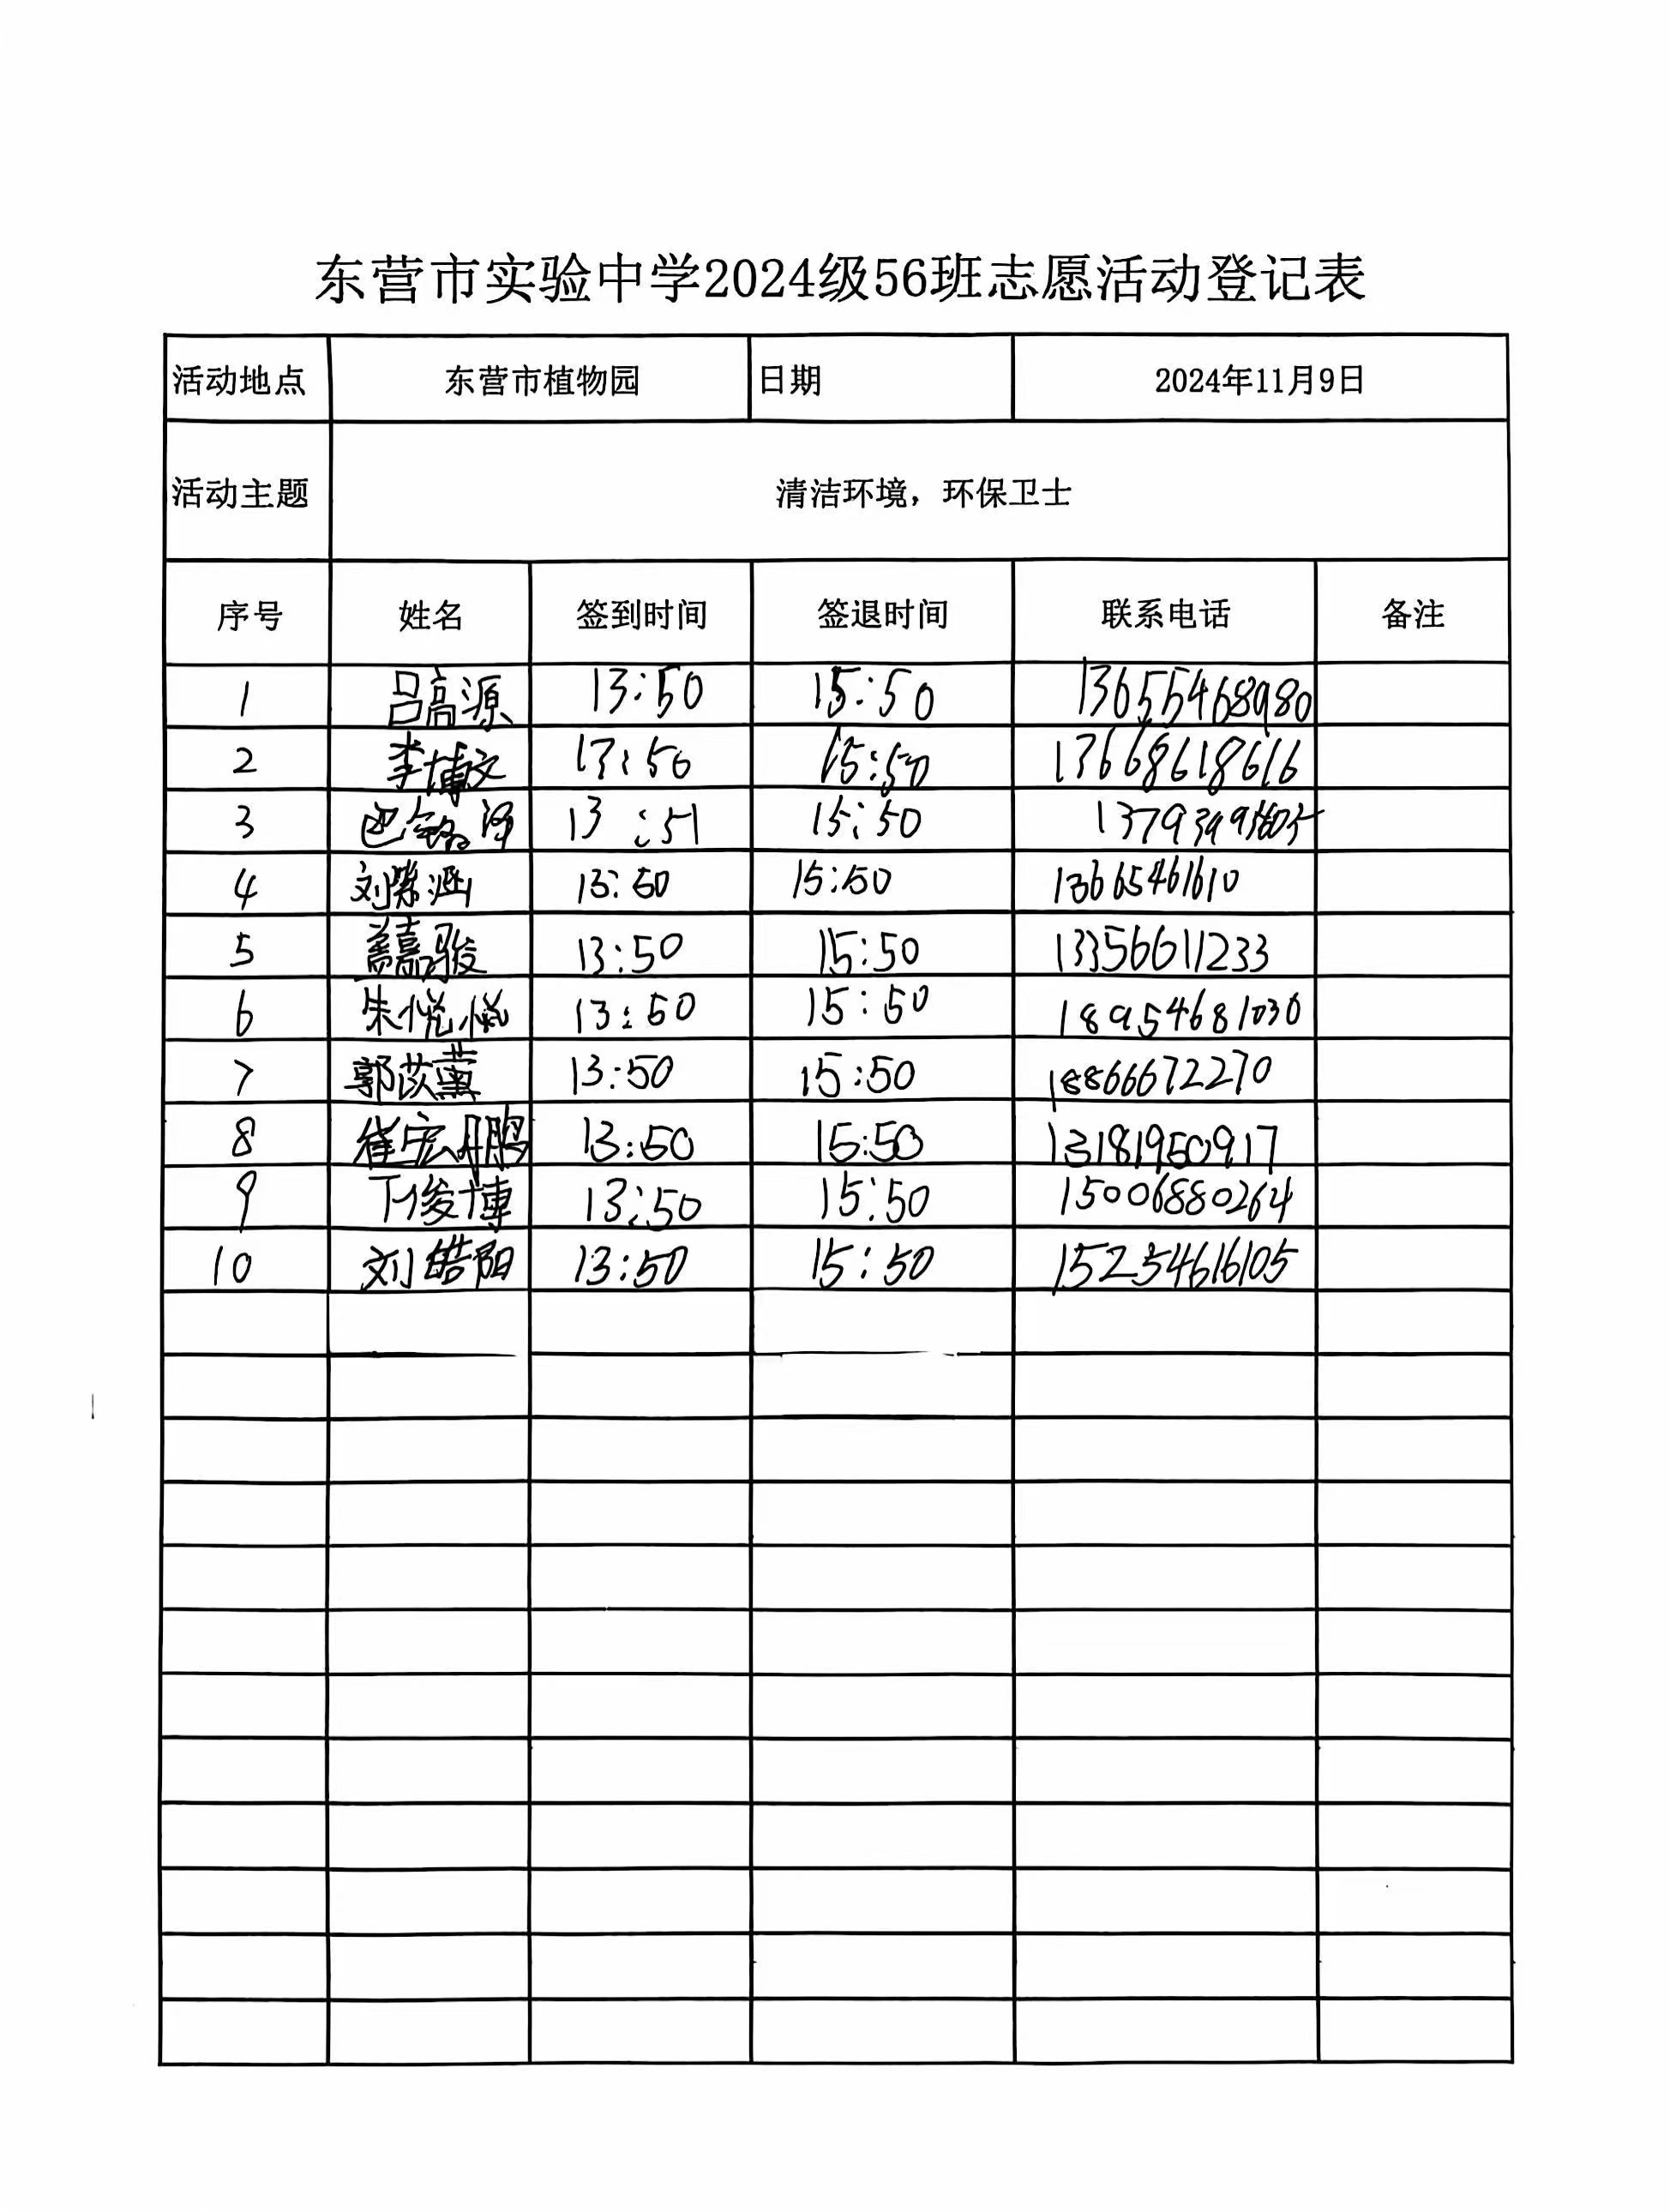 东营市实验中学2024级56班志愿活动登记表
活动地点 东营市植物园 日期 2024年11月9日
活动主题 清洁环境，环保卫士
序号 姓名 签到时间 签退时间 联系电话 备注
1 吕高源 13:50 15:50 13655468980
2 李博文 13:50 15:50 13668618616
3 巴 泽 13:51 15:50
4 刘 涵 13:50 15:50 13665461610
5 嘉骏 13:50 15:50 13356611233
6 朱悦悦 13:50 15:50 18954681030
7 郭苡薰 13:50 15:50 18866672270
8 崔宏鹏 13:50 15:50 13181950917
9 丁俊博 13:50 15:50 15006880264
10 刘皓阳 13:50 15:50 15254616105